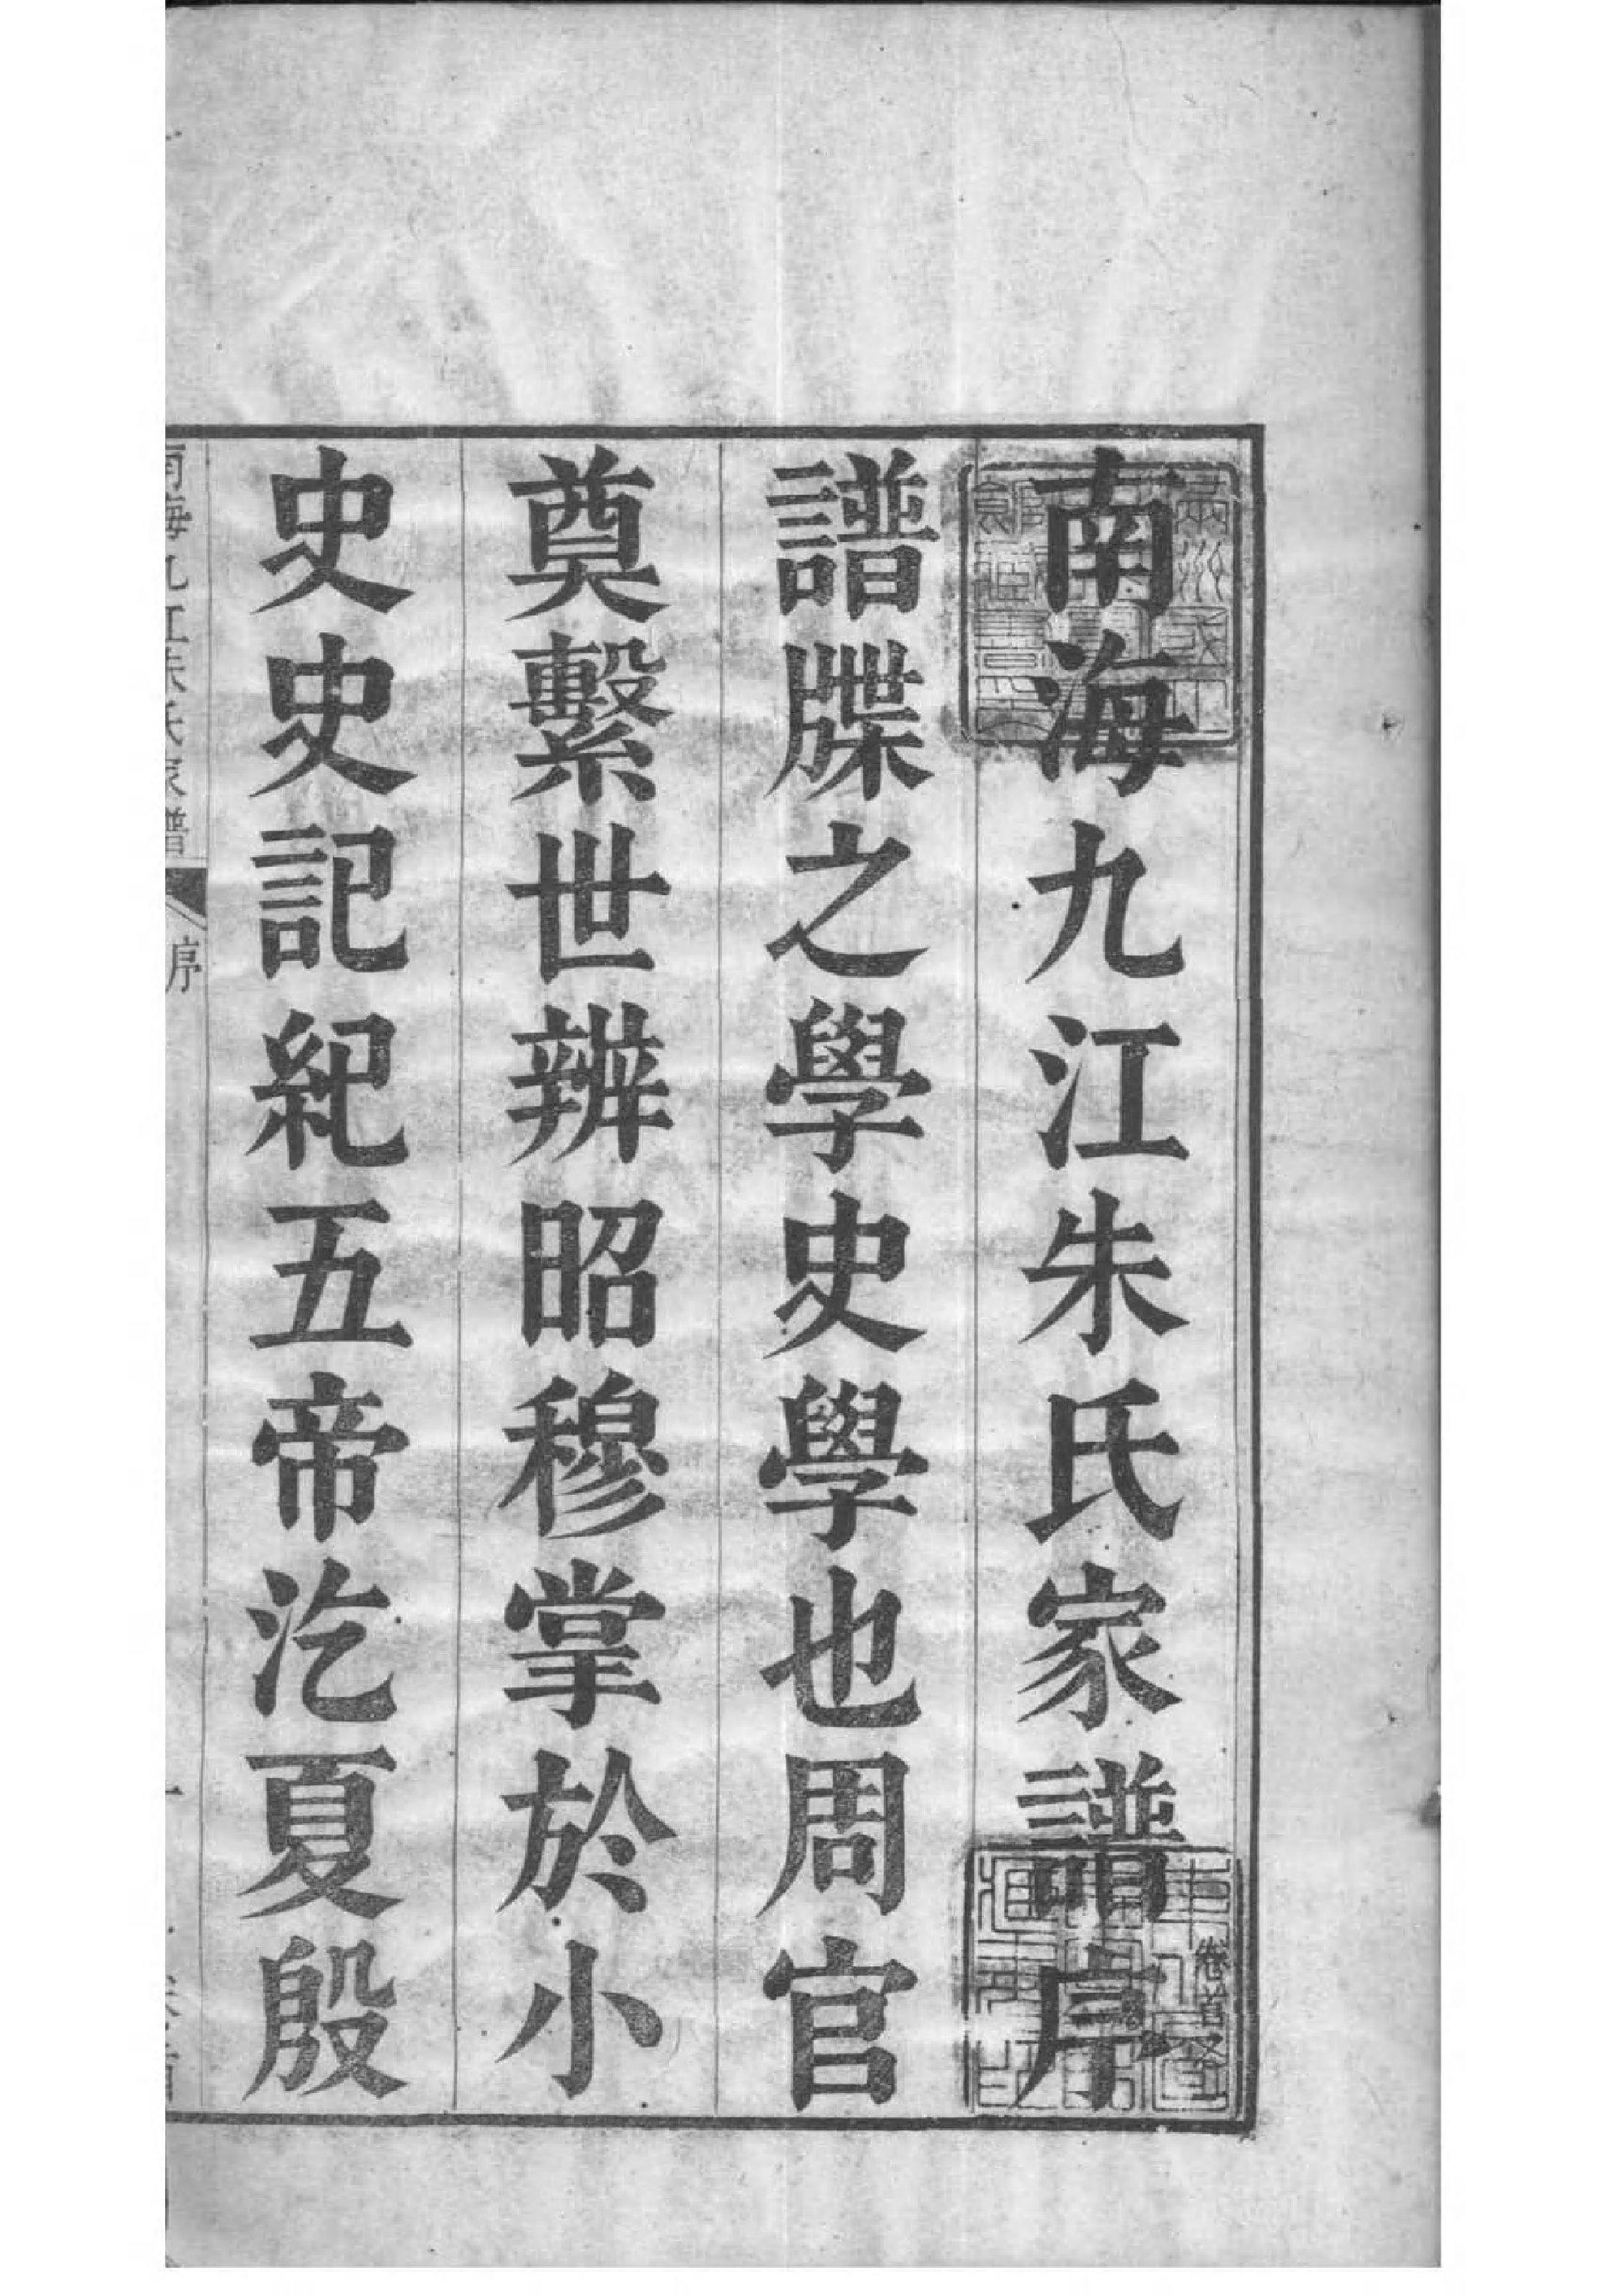 南海九江朱氏家譜序
卷首又
譜牒之學史學也周官
奠繫世辨昭穆掌於小
史史記紀五帝汔夏殷
南海九江朱氏家譜
序
一